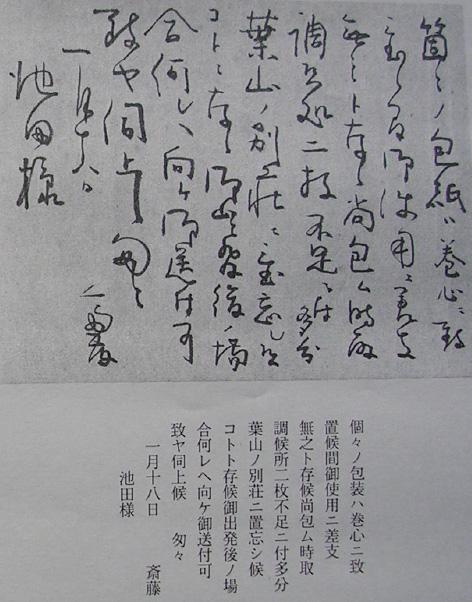 箇々ノ包紙ハ巻心ニ致
置候間御使用ニ差支
無之ト存候尚包ム時取
調候処二枚不足ニ付多分
葉山ノ別荘ニ置忘シ候
コトト存候御出發後ノ場
合何レヘ向ケ御送付可
致ヤ伺上候 匆々
一月十八日
斎藤
池田様
個々ノ包装ハ巻心ニ致
置候間御使用ニ差支
無之ト存候尚包ム時取
調候所二枚不足ニ付多分
葉山ノ別荘ニ置忘シ候
コトト存候御出発後ノ場
合何レヘ向ケ御送付可
致ヤ伺上候 匆々
一月十八日 斎藤
池田様